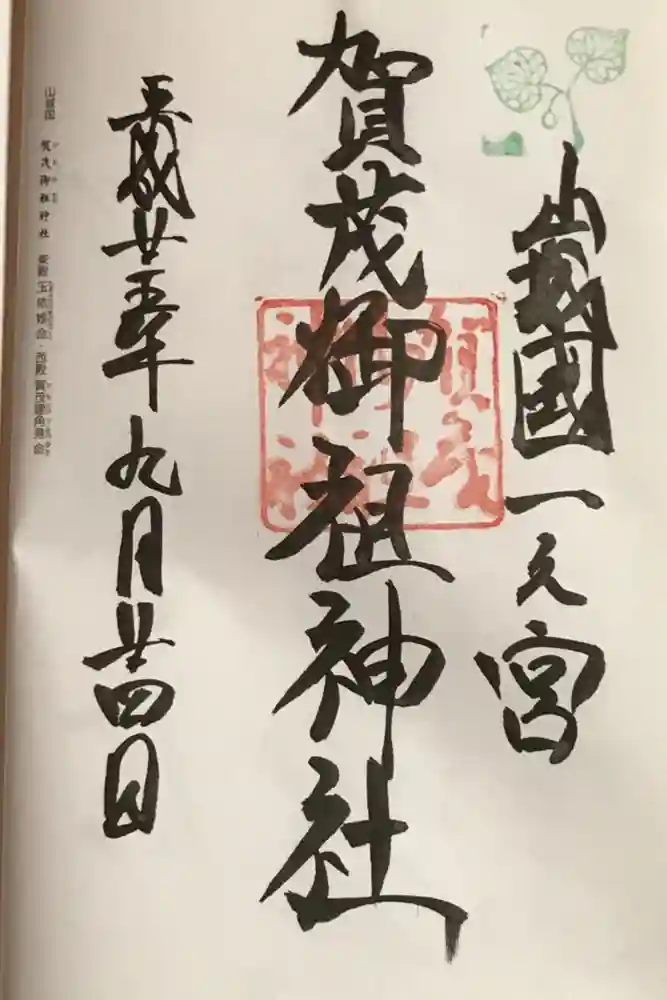 山城國一之宮
賀茂御祖神社
平成廿五年九月廿四日
山城国 賀茂御祖神社 東殿 玉依媛命・西殿 賀茂建角身命